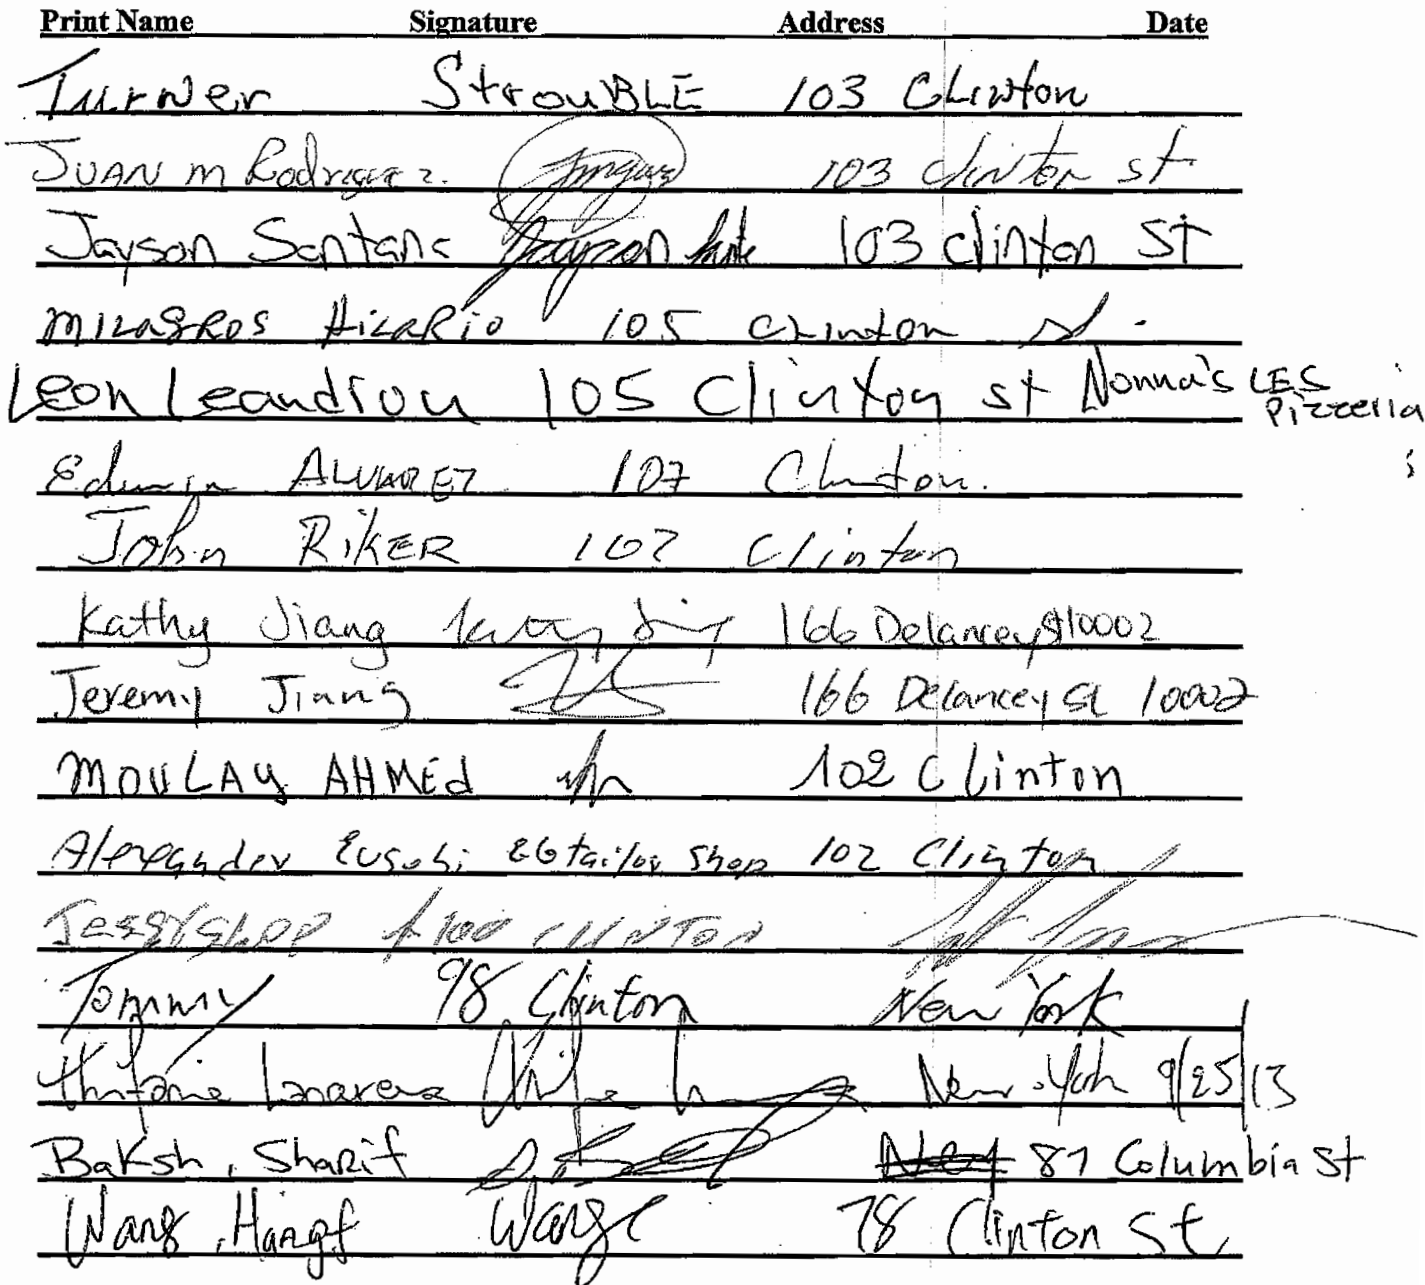 Print Name Signature Address Date
Turner StrouBLE 103 CLinton
JUAN m Rodriguez. 103 clinton st
Jayson Santana Jayson 103 Clinton ST
MILAGROS HILARIO 105 CLinton st.
Leon Leandrou 105 Clinton st Nonna's LES
Pizzeria
Edwin ALVAREZ 107 Clinton.
John RIKER 102 Clinton
Kathy Jiang 166 Delancey St 10002
Jeremy Jiang 166 Delancey St 10002
MOULAY AHMEd 102 CLinton
Alexander shop 102 Clinton
100 CLINTON
Tommy 98 Clinton New York
New York 9/25/13
Baksh, Sharif 87 Columbia St
Wang 78 Clinton St